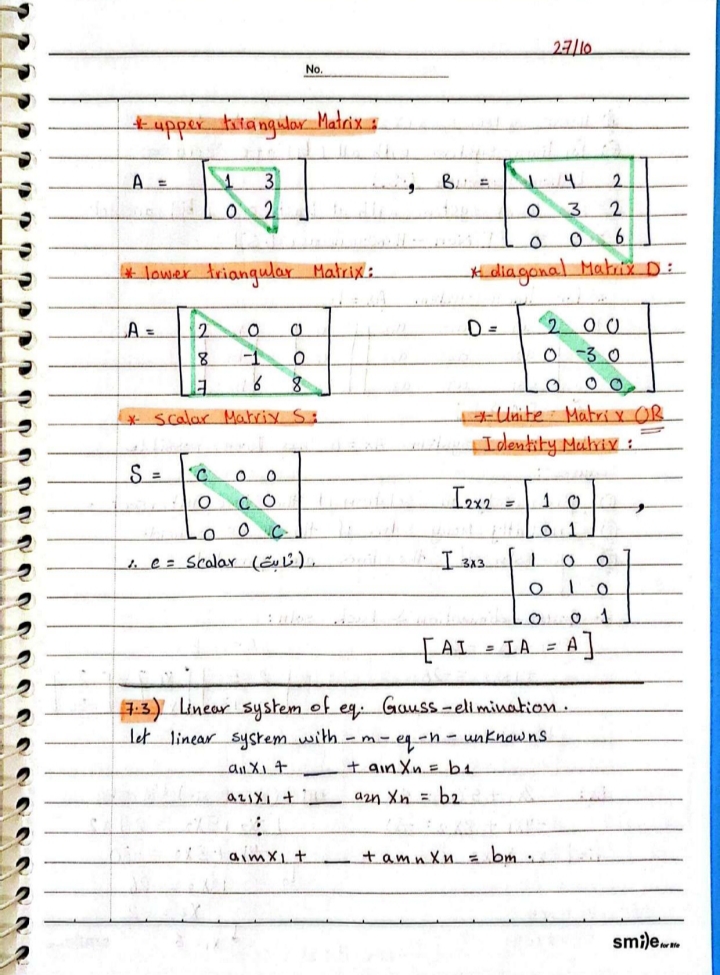 27/10
No.
* upper triangular Matrix :
A = [ 1 3 , B = [ 1 4 2
0 2 ] 0 3 2
0 0 6 ]
* lower triangular Matrix : * diagonal Matrix D :
A = [ 2 0 0 D = [ 2 0 0
8 -1 0 0 -3 0
7 6 8 ] 0 0 0 ]
* Scalar Matrix S : * Unite Matrix OR
Identity Matrix :
S = [ c 0 0
0 c 0 I2x2 = [ 1 0 ,
0 0 c ] 0 1 ]
∴ c = scalar (ثابت). I 3x3 [ 1 0 0
0 1 0
0 0 1 ]
[ AI = IA = A ]
7.3) Linear system of eq. Gauss-elimination.
let linear system with - m - eq - n - unknowns
a11x1 + __ + a1nXn = b1
a21x1 + __ a2n Xn = b2
⋮
a1mx1 + __ + amnXn = bm .
smile for life